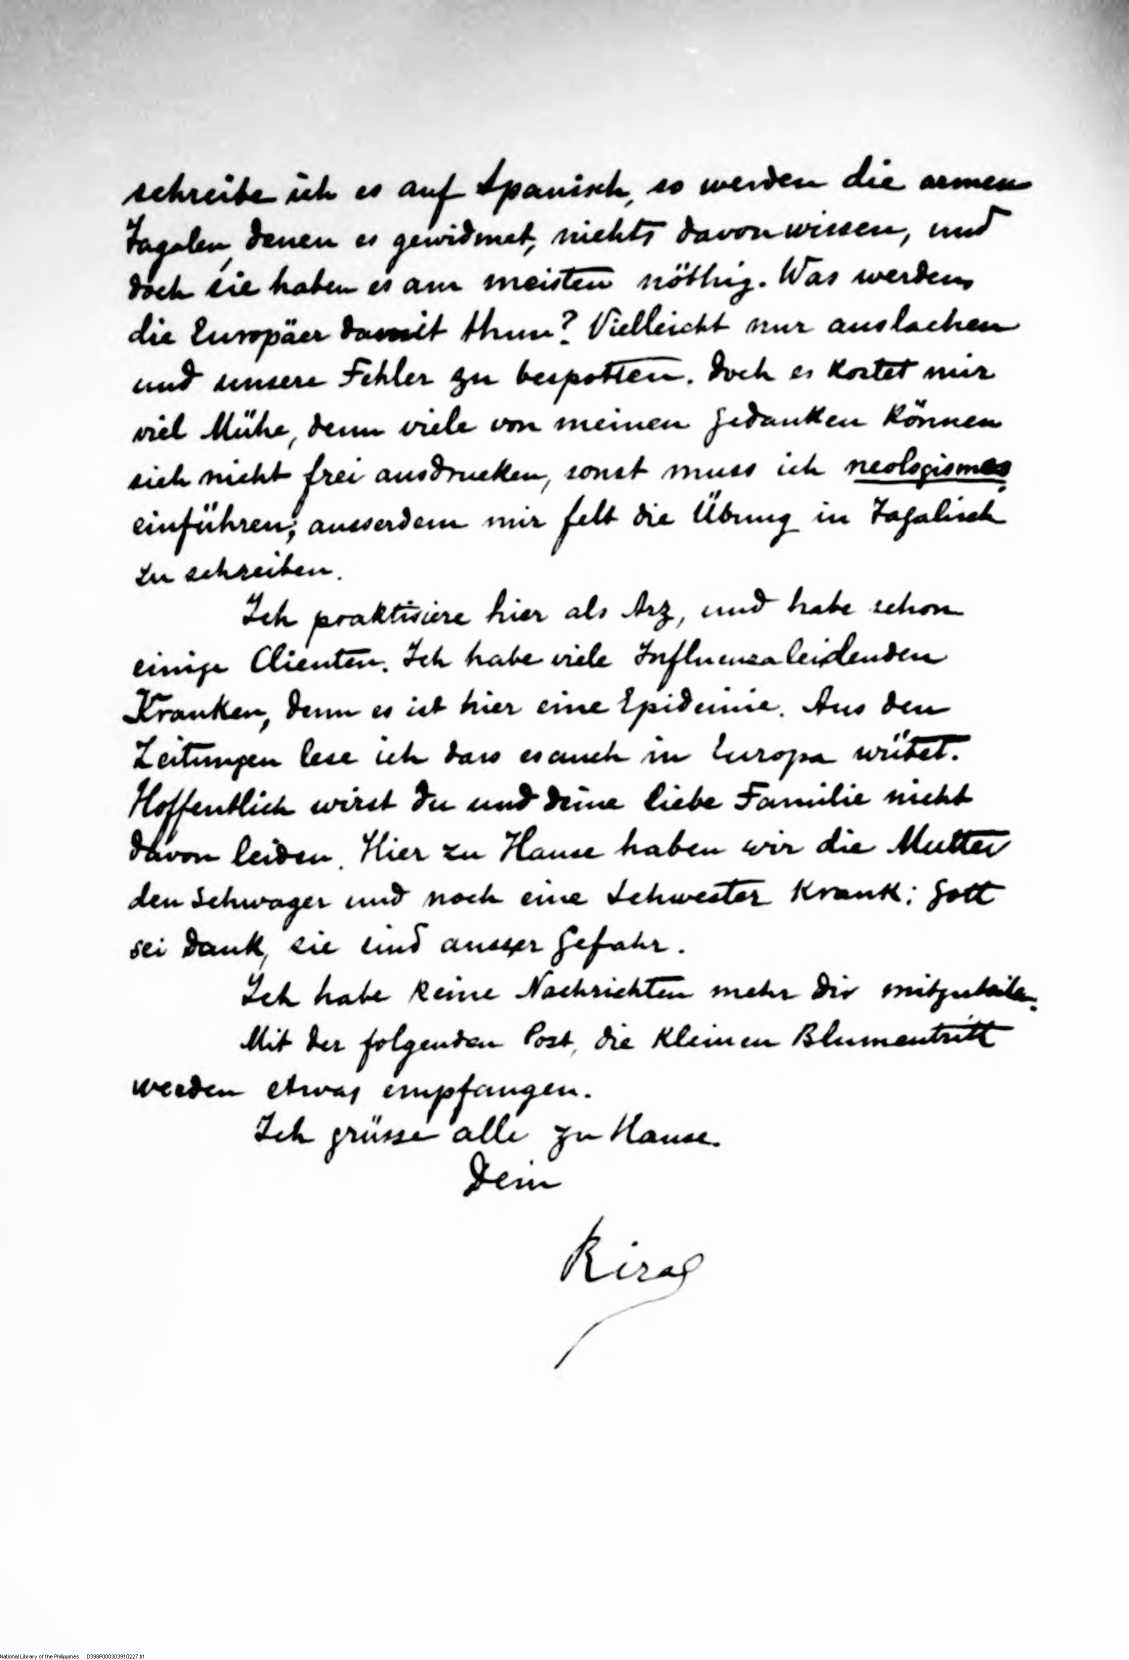 schreibe ich es auf Spanisch, so werden die armen
Tagalen, denen es gewidmet, nichts davon wissen, und
doch sie haben es am meisten nöthig. Was werden
die Europäer damit thun? Vielleicht nur auslachen
und unsere Fehler zu bespotten. Doch es kostet mir
viel Mühe, denn viele von meinen Gedanken können
sich nicht frei ausdrucken, sonst muss ich neologismes
einführen; ausserdem mir felt die Übung in Tagalisch
zu schreiben.
Ich praktisiere hier als Arz, und habe schon
einige Clienten. Ich habe viele Influenzaleidenden
Kranken, denn es ist hier eine Epidemie. Aus den
Zeitungen lese ich dass es auch in Europa wütet.
Hoffentlich wirst du und deine liebe Familie nicht
davon leiden. Hier zu Hause haben wir die Mutter
den Schwager und noch eine Schwester krank: Gott
sei Dank, sie sind ausser Gefahr.
Ich habe keine Nachrichten mehr dir mitzuteilen.
Mit der folgenden Post, die kleinen Blumentritt
werden etwas empfangen.
Ich grüsse alle zu Hause.
Dein
Rizal
National Library of the Philippines D398P000303910227.tif